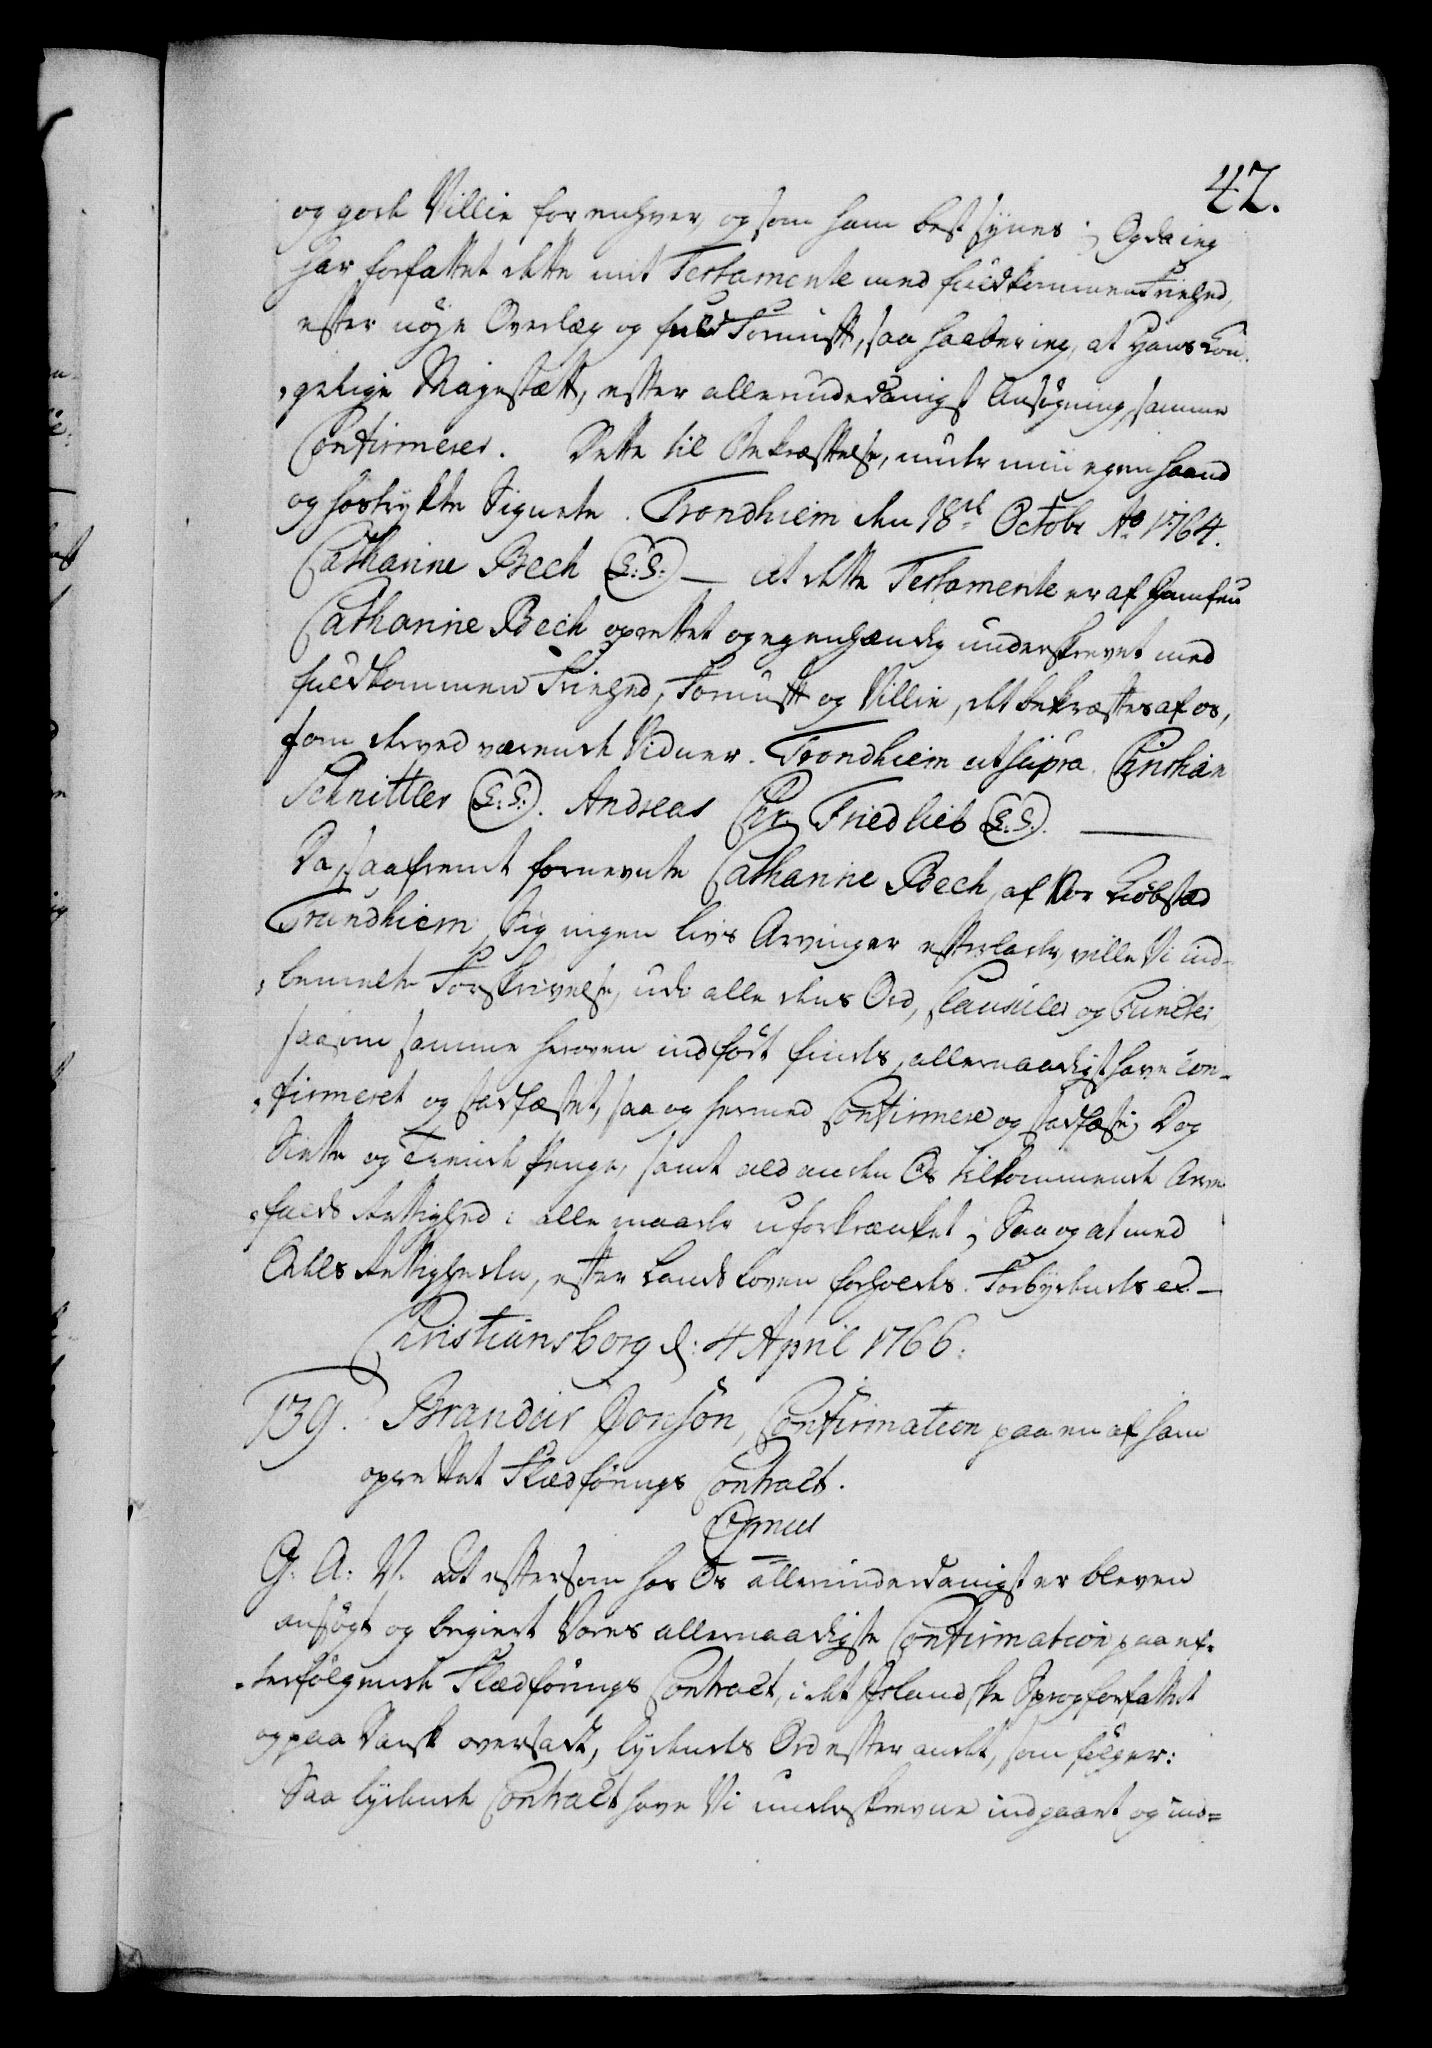 42.
og godt Villie for enhver, og som ham best synes; Og da ieg
har forfattet dette mit Testamente med fuldkommen Friehed,
efter nøye Overlæg og fuld Fornuft, saa haaber ieg, at Hans Kon-
gelige Majestætt, efter allerunderdanigst Ansøgning, samme
Confirmerer. Dette til Bekræftelse, under min egen haand
og hostrykte Signete. Trondhiem den 18de Octobr Ao 1764.
Catharine Bech (L:S:) — at dette Testamente er af Jomfru
Catharine Bech oprettet og egenhændig underskrevet med
fuldkommen Friehed, Fornuft og Villie, det bekræftes af os,
som derved værende Vidner. Trondhiem ut supra. Christian
Schnittler (L:S:). Andreas Chr. Friedlieb (L.S.). —
Da, saafremt fornevnte Catharine Bech, af Vor Kiøbstæd
Trundhiem, Sig ingen livs Arvinger efterlader, ville Vi ind-
bemelte Forskrivelse, udi alle dens Ord, Clausuler og Puncter,
saasom samme heroven indført findes, allernaadigst have con-
firmeret og stadfæstet, saa og hermed Confirmere og stadfæste; Dog
Siette og Tiende Penge, samt ald anden Os tilkommende Arve-
falds Rettighed i alle maader uforkrænket; Saa og at med
Odels Rettigheden, efter Lands Loven forholdes. Forbydendes etc. —
Christiansborg d: 4 April 1766.
139. Brandur Jonsøn, Confirmation paa en af ham
oprettet Flædførings Contract.
G: A: V. at eftersom hos Os allerunderdanigst er bleven
ansøgt og begiert Vores allernaadigste Confirmation paa ef-
terfølgende Flædførings Contract, i det Islandske Sprog forfattet
og paa Dansk oversadt, lydendes Ord efter andet, som følger:
Saa lydende Contract have Vi underskrevne indgaaet og ind=